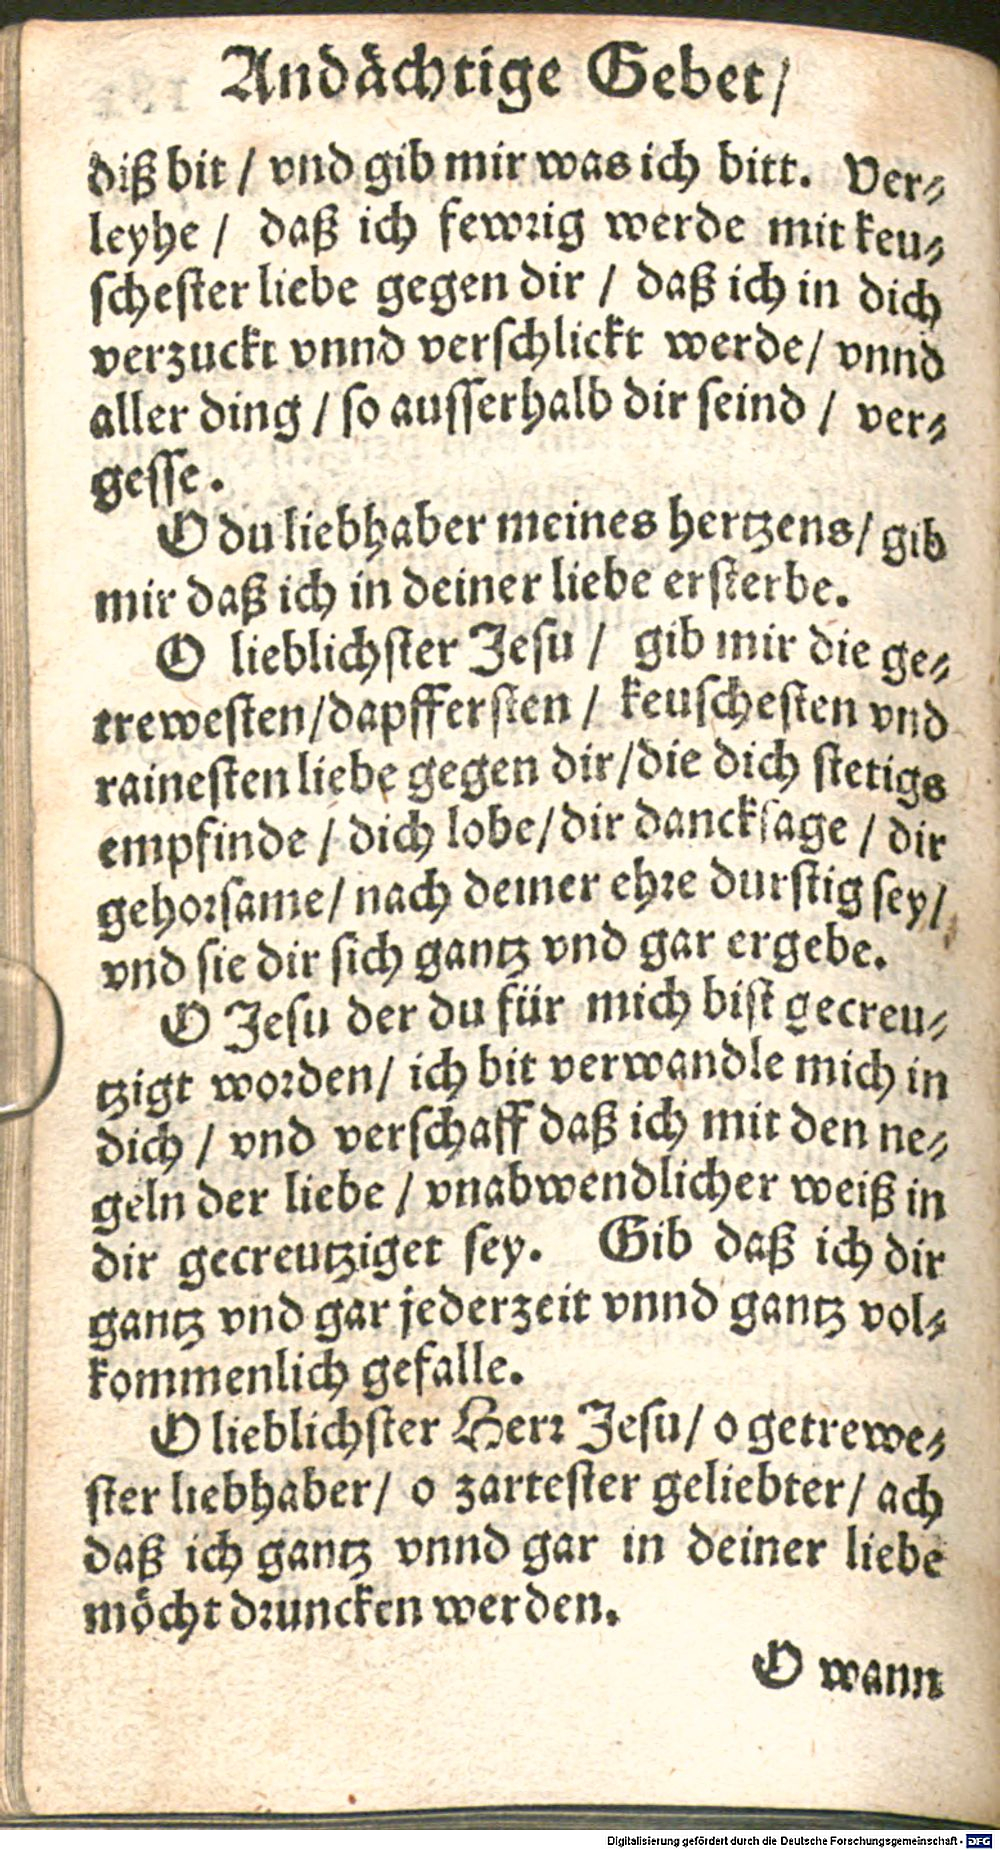 Andächtige Gebet/
diß bit / vnd gib mir was ich bitt. Ver⸗
leyhe / daß ich fewrig werde mit keu⸗
schester liebe gegen dir / daß ich in dich
verzuckt vnnd verschlickt werde/ vnnd
aller ding / so ausserhalb dir seind / ver⸗
gesse.
O du liebhaber meines hertzens/ gib
mir daß ich in deiner liebe ersterbe.
O lieblichster Jesu / gib mir die ge⸗
trewesten/dapffersten / keuschesten vnd
rainesten liebe gegen dir/die dich stetigs
empfinde / dich lobe/dir dancksage / dir
gehorsame/ nach deiner ehre durstig sey/
vnd sie dir sich gantz vnd gar ergebe.
O Jesu der du für mich bist gecreu⸗
tzigt worden/ ich bit verwandle mich in
dich / vnd verschaff daß ich mit den ne⸗
geln der liebe / vnabwendlicher weiß in
dir gecreutziget sey. Gib daß ich dir
gantz vnd gar jederzeit vnnd gantz vol⸗
kommenlich gefalle.
O lieblichster Herr Jesu/ o getrewe⸗
ster liebhaber/ o zartester geliebter/ ach
daß ich gantz vnnd gar in deiner liebe
möcht druncken werden.
O wann
Digitalisierung gefördert durch die Deutsche Forschungsgemeinschaft - DFG